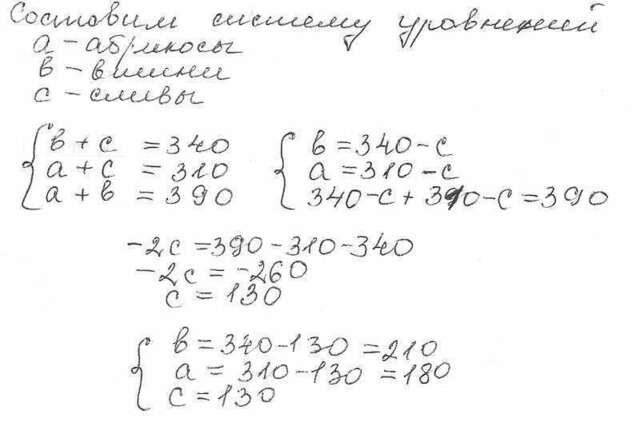 Составим систему уравнений
а – абрикосы
в – вишни
с – сливы
в + с = 340
а + с = 310
а + в = 390
в = 340 – с
а = 310 – с
340 – с + 310 – с = 390
–2с = 390 – 310 – 340
–2с = –260
с = 130
в = 340 – 130 = 210
а = 310 – 130 = 180
с = 130